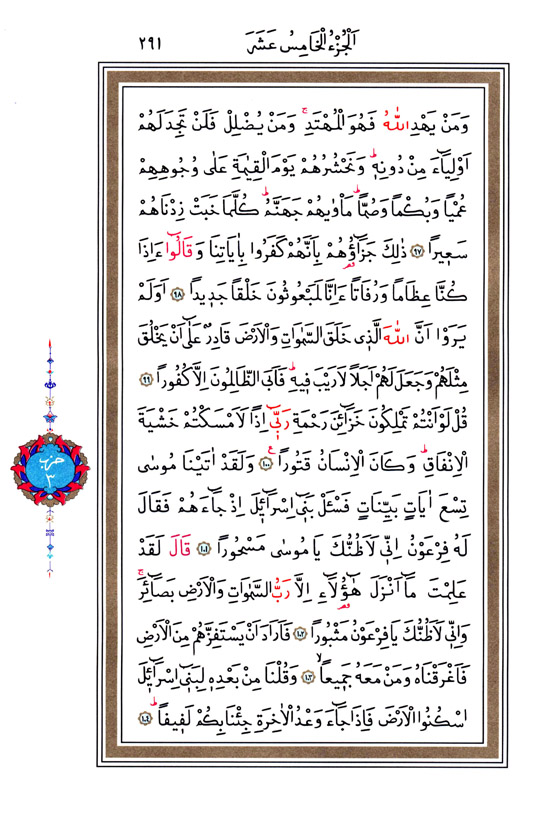 اَلْجُزْءُ الْخَامِسُ عَشَرَ
٢٩١
وَمَنْ يَهْدِ اللّٰهُ فَهُوَ الْمُهْتَدِۚ وَمَنْ يُضْلِلْ فَلَنْ تَجِدَ لَهُمْ
اَوْلِيَٓاءَ مِنْ دُونِه۪ۜ وَنَحْشُرُهُمْ يَوْمَ الْقِيٰمَةِ عَلٰى وُجُوهِهِمْ
عُمْيًا وَبُكْمًا وَصُمًّاۜ مَأْوٰيهُمْ جَهَنَّمُۜ كُلَّمَا خَبَتْ زِدْنَاهُمْ
سَع۪يرًا ﴿٩٧﴾ ذٰلِكَ جَزَٓاؤُ۬هُمْ بِاَنَّهُمْ كَفَرُوا بِاٰيَاتِنَا وَقَالُٓوا ءَاِذَا
كُنَّا عِظَامًا وَرُفَاتًا ءَاِنَّا لَمَبْعُوثُونَ خَلْقًا جَد۪يدًا ﴿٩٨﴾ اَوَلَمْ
يَرَوْا اَنَّ اللّٰهَ الَّذ۪ي خَلَقَ السَّمٰوَاتِ وَالْاَرْضَ قَادِرٌ عَلٰٓى اَنْ يَخْلُقَ
مِثْلَهُمْ وَجَعَلَ لَهُمْ اَجَلًا لَا رَيْبَ ف۪يهِۜ فَاَبَى الظَّالِمُونَ اِلَّا كُفُورًا ﴿٩٩﴾
قُلْ لَوْ اَنْتُمْ تَمْلِكُونَ خَزَٓائِنَ رَحْمَةِ رَبّ۪ٓي اِذًا لَاَمْسَكْتُمْ خَشْيَةَ
الْاِنْفَاقِۜ وَكَانَ الْاِنْسَانُ قَتُورًا۟ ﴿١٠٠﴾ وَلَقَدْ اٰتَيْنَا مُوسٰى
تِسْعَ اٰيَاتٍ بَيِّنَاتٍ فَسْـَٔلْ بَن۪ٓي اِسْرَٓائ۪لَ اِذْ جَٓاءَهُمْ فَقَالَ
لَهُ فِرْعَوْنُ اِنّ۪ي لَاَظُنُّكَ يَا مُوسٰى مَسْحُورًا ﴿١٠١﴾ قَالَ لَقَدْ
عَلِمْتَ مَٓا اَنْزَلَ هٰٓؤُ۬لَٓاءِ اِلَّا رَبُّ السَّمٰوَاتِ وَالْاَرْضِ بَصَٓائِرَۚ
وَاِنّ۪ي لَاَظُنُّكَ يَا فِرْعَوْنُ مَثْبُورًا ﴿١٠٢﴾ فَاَرَادَ اَنْ يَسْتَفِزَّهُمْ مِنَ الْاَرْضِ
فَاَغْرَقْنَاهُ وَمَنْ مَعَهُ جَم۪يعًاۙ ﴿١٠٣﴾ وَقُلْنَا مِنْ بَعْدِه۪ لِبَن۪ٓي اِسْرَٓائ۪لَ
اسْكُنُوا الْاَرْضَ فَاِذَا جَٓاءَ وَعْدُ الْاٰخِرَةِ جِئْنَا بِكُمْ لَف۪يفًاۜ ﴿١٠٤﴾
حزب
٣